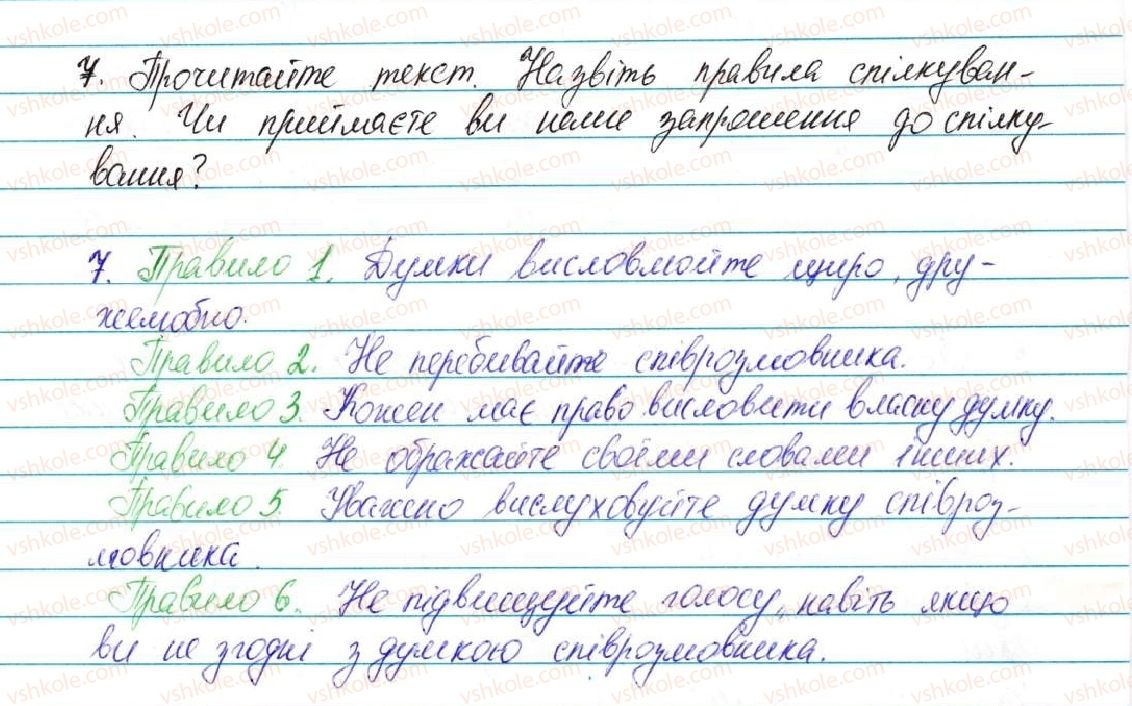 7. Прочитайте текст. Назвіть правила спілкуван-
ня. Чи приймаєте ви наше запрошення до спілку-
вання?
7. Правило 1. Думки висловлюйте щиро, дру-
желюбно.
Правило 2. Не перебивайте співрозмовника.
Правило 3. Кожен має право висловити власну думку.
Правило 4. Не ображайте своїми словами інших.
Правило 5. Уважно вислуховуйте думку співроз-
мовника.
Правило 6. Не підвищуйте голосу, навіть якщо
ви не згодні з думкою співрозмовника.
vshkole.com